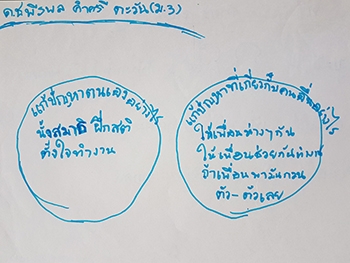 ด.ช.พีรพล คำศรี ตะวัน(ม.3)
แก้ปัญหาตนเองอย่างไร
นั่งสมาธิ ฝึกสติ
ตั้งใจทำงาน
แก้ปัญหาที่เกี่ยวกับคนอื่นอย่างไร
ให้เพื่อนห่างๆกัน
ให้เพื่อนช่วยกันทำงาน
จำเพื่อนพามันกวน
ตัว-ตัวเลย